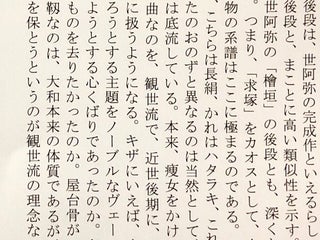 後段は、世阿弥の完成作といえるらし
後段と、まことに高い類似性を示す。
世阿弥の「檜垣」の後段とも、深く
。つまり、「求塚」をカオスとして、
物の系譜はここに極まるのである。
、こちらは長絹、かれはハタラキ、これ
たのおのずと異なるのは当然として
は底流している。本来、痩女をかけ
曲なのを、観世流で、近世後期に、
に扱うようになる。キザにいえば、
ろうとする主題をノーブルなヴェー
ようとする心くばりであったのか。
ものを去りたかったのか。屋台骨が
靱なのは、大和本来の体質であるが
を保とうというのが観世流の理念な